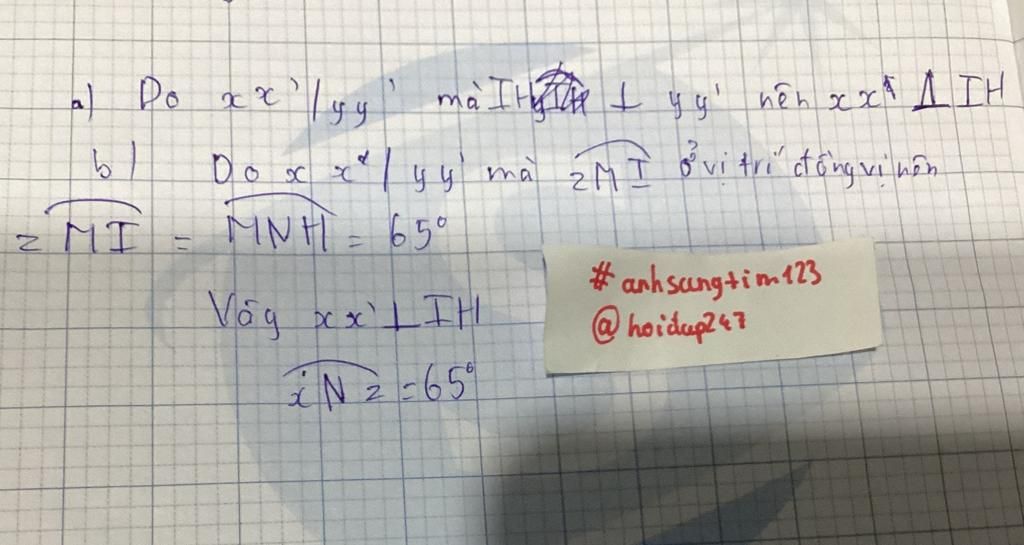 a) Do xx' / yy' mà IH ⊥ yy' nên xx' ⊥ IH
b) Do xx' / yy' mà zMI ở vị trí đồng vị nên
zMI = MNH = 65°
Vậy xx' ⊥ IH
iNz = 65°
#anhsangtim123
@hoidap247